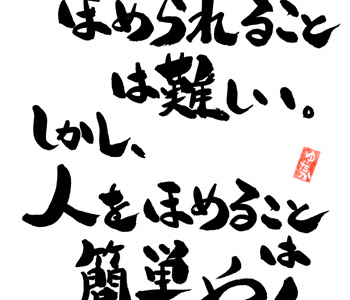 ほめられること
は難しい。
しかし、
人をほめること
は
簡単や
ゆたか